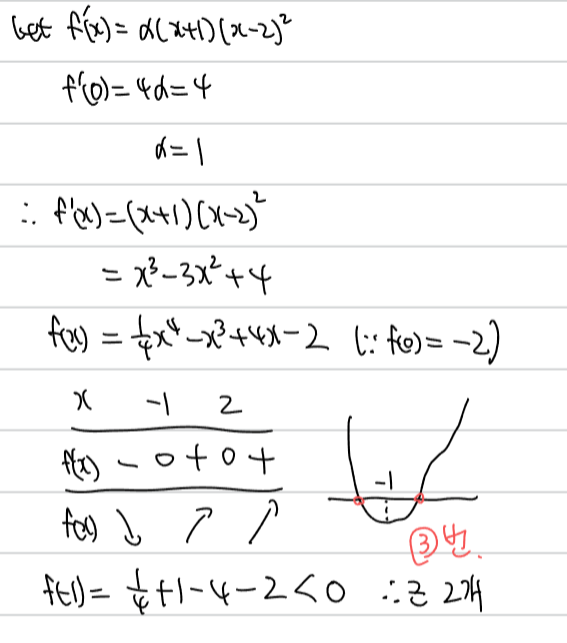 Let f'(x)=α(x+1)(x-2)²
f'(0)=4α=4
α=1
∴ f'(x)=(x+1)(x-2)²
=x³-3x²+4
f(x)=¼x⁴-x³+4x-2 (∵ f(0)=-2)
x -1 2
f'(x) - 0 + 0 +
f(x) ↘ ↗ ↗
-1
③번.
f(-1)=¼+1-4-2<0 ∴근 2개